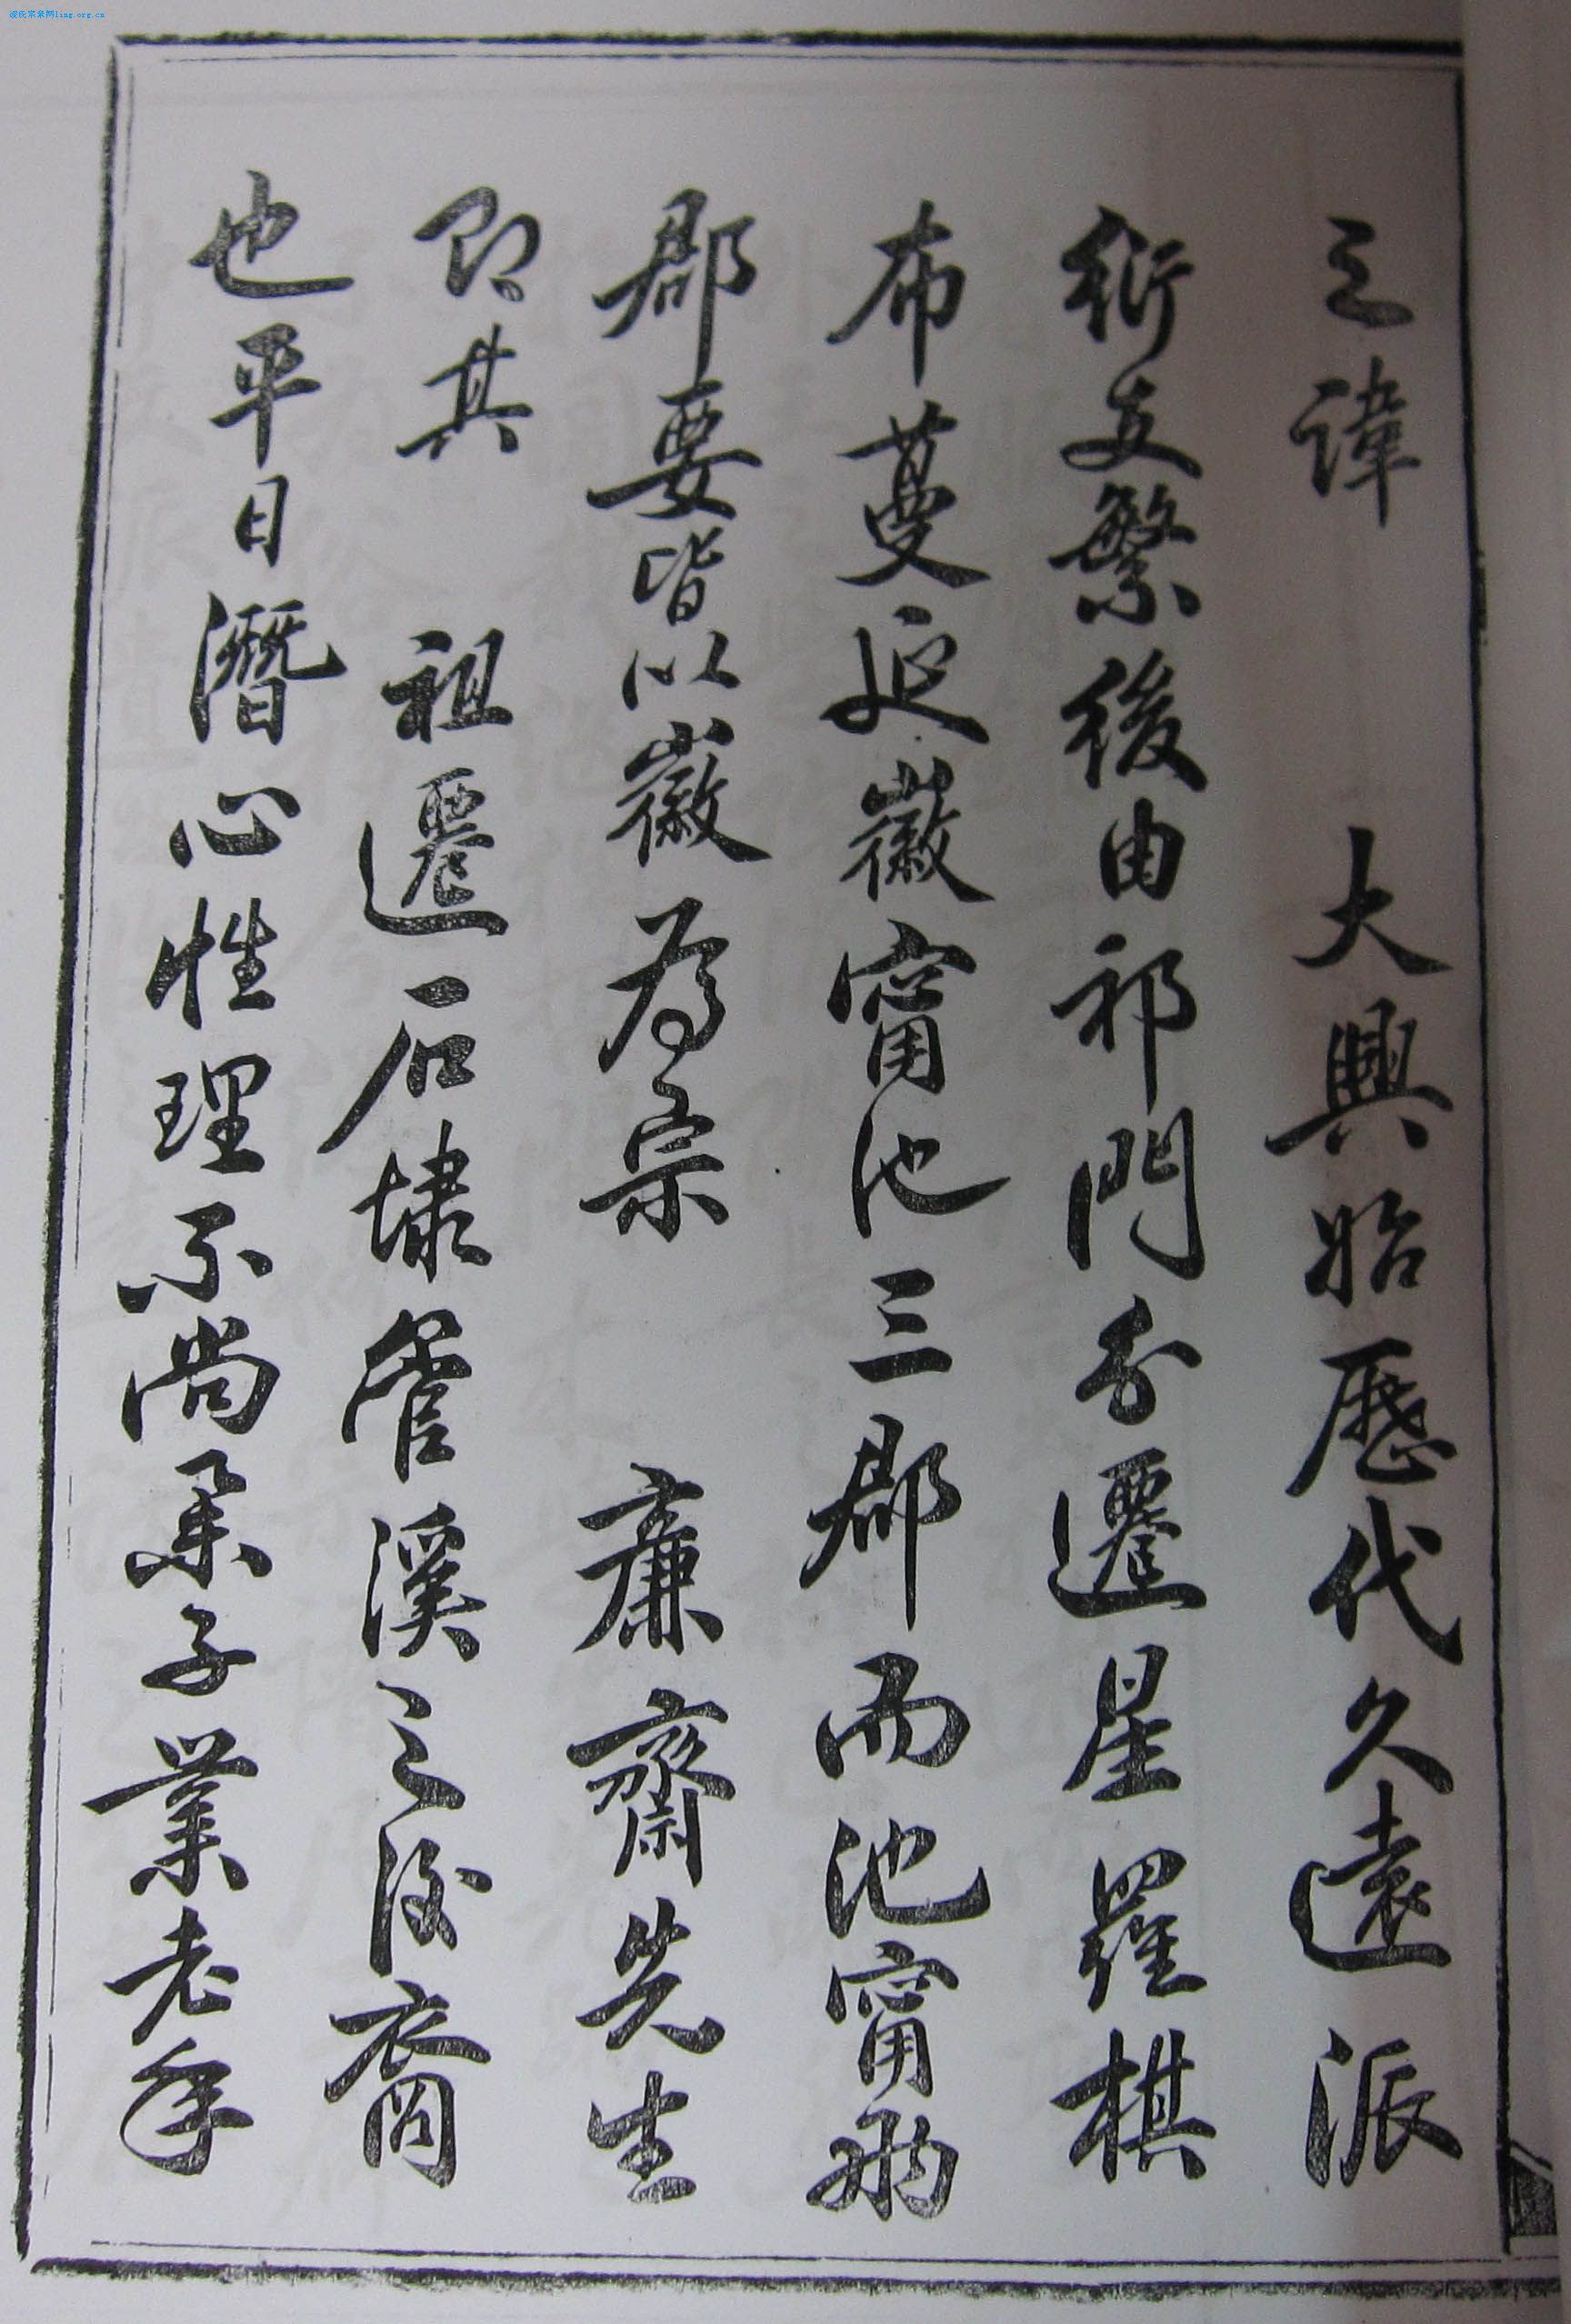 凌氏宗亲网ling.org.cn
之諱 大興始歷代久遠派
衍支繁後由祁門分遷星羅棋
布蔓延徽甯池三郡而池甯兩
郡要皆以徽為宗 廉齋先生
即其 祖遷石埭管溪之後裔
也平日潛心性理不尚舉子業老年